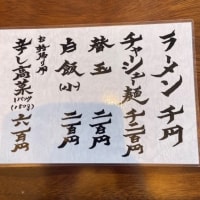 ラーメン 千円
チャーシュー麺 千二百円
替玉 二百円
白飯(小) 二百円
お持ち帰り用
辛し高菜 六百円
1パック
(150g)